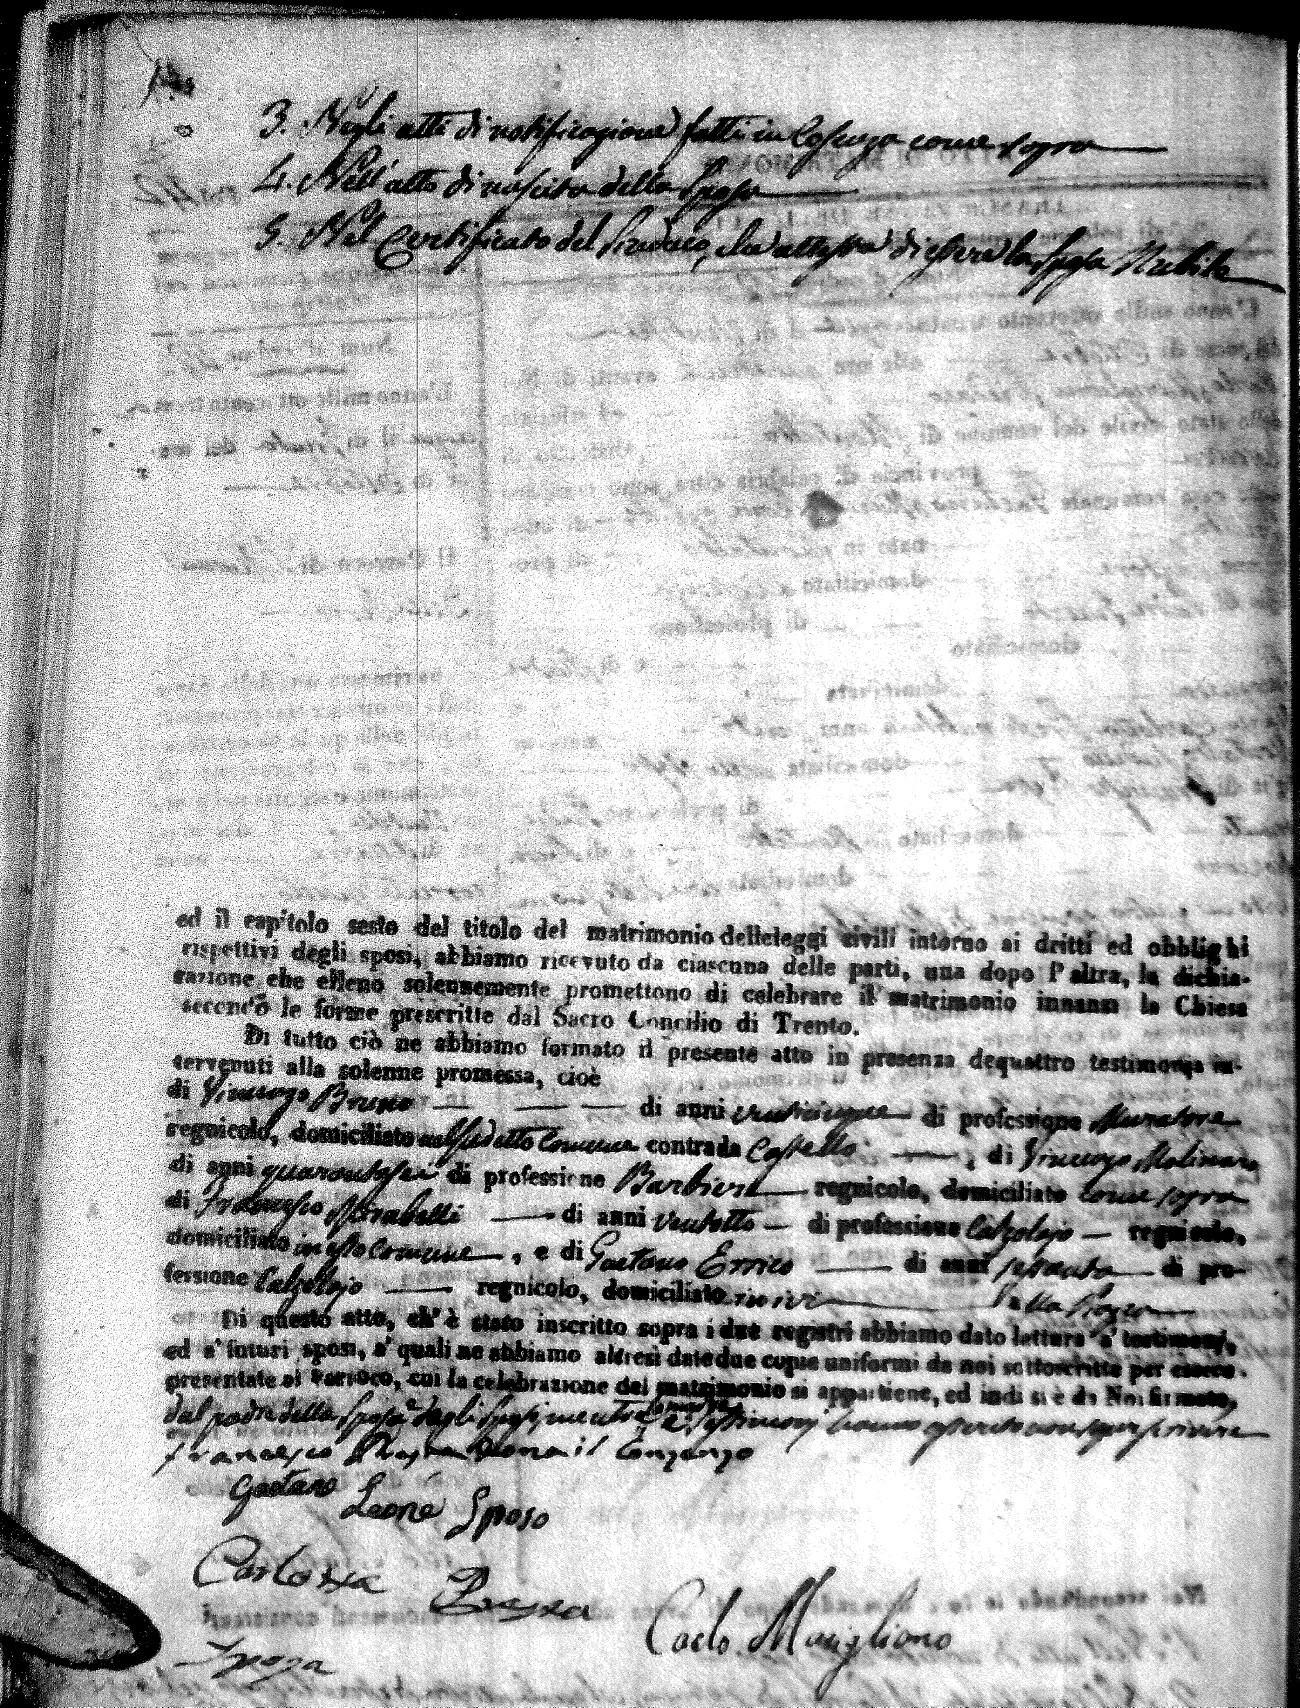 3. Negli atti di notificazione fatti in Cosenza come sopra
4. Nell'atto di nascita della Sposa
5. Nel Certificato del Sindaco, che attesta di essere la Sposa Nubile
ed il capitolo sesto del titolo del matrimonio delle leggi civili intorno ai dritti ed obblighi
rispettivi degli sposi, abbiamo ricevuto da ciascuna delle parti, una dopo l'altra, la dichia-
razione che elleno solennemente promettono di celebrare il matrimonio innanzi la Chiesa
secondo le forme prescritte dal Sacro Concilio di Trento.
Di tutto ciò ne abbiamo formato il presente atto in presenza de quattro testimonj in-
tervenuti alla solenne promessa, cioè
di Vincenzo Bruno di anni venticinque di professione Muratore
regnicolo, domiciliato nel suddetto Comune contrada Castello , di Vincenzo Molinaro
di anni quarantasei di professione Barbiere regnicolo, domiciliato come sopra
di Francesco Mirabelli di anni ventotto di professione Calzolajo regnicolo,
domiciliato in esso Comune , e di Gaetano Errico di anni settanta di pro-
fessione Calzolajo regnicolo, domiciliato ivi
Di questo atto, ch'è stato inscritto sopra i due registri abbiamo dato lettura a' testimonj,
ed a' futuri sposi, a' quali ne abbiamo altresì date due copie uniformi da noi sottoscritte per essere
presentate al Parroco, cui la celebrazione del matrimonio si appartiene, ed indi si è da Noi firmato,
dal padre della Sposa dagli Sposi mentre i testimonj hanno asserito non saper scrivere
Francesco
Gaetano Leone Sposo
Sposa
Carlo